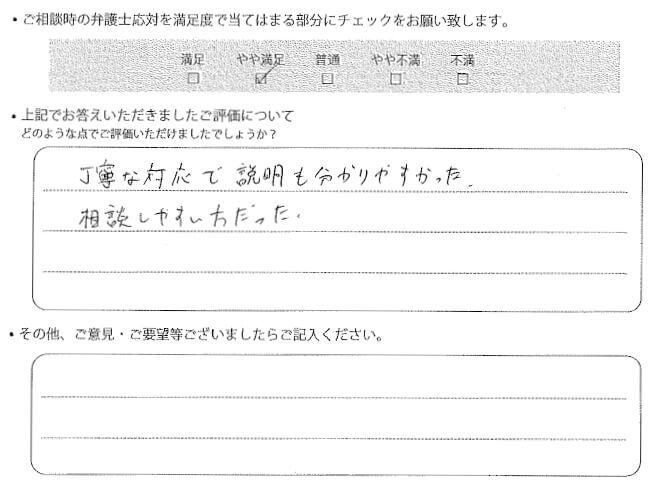 ・ご相談時の弁護士応対を満足度で当てはまる部分にチェックをお願い致します。
満足 やや満足 普通 やや不満 不満
□ ☑ □ □ □
・上記でお答えいただきましたご評価について
どのような点でご評価いただけましたでしょうか？
丁寧な対応で説明も分かりやすかった.
相談しやすい方だった.
・その他、ご意見・ご要望等ございましたらご記入ください。